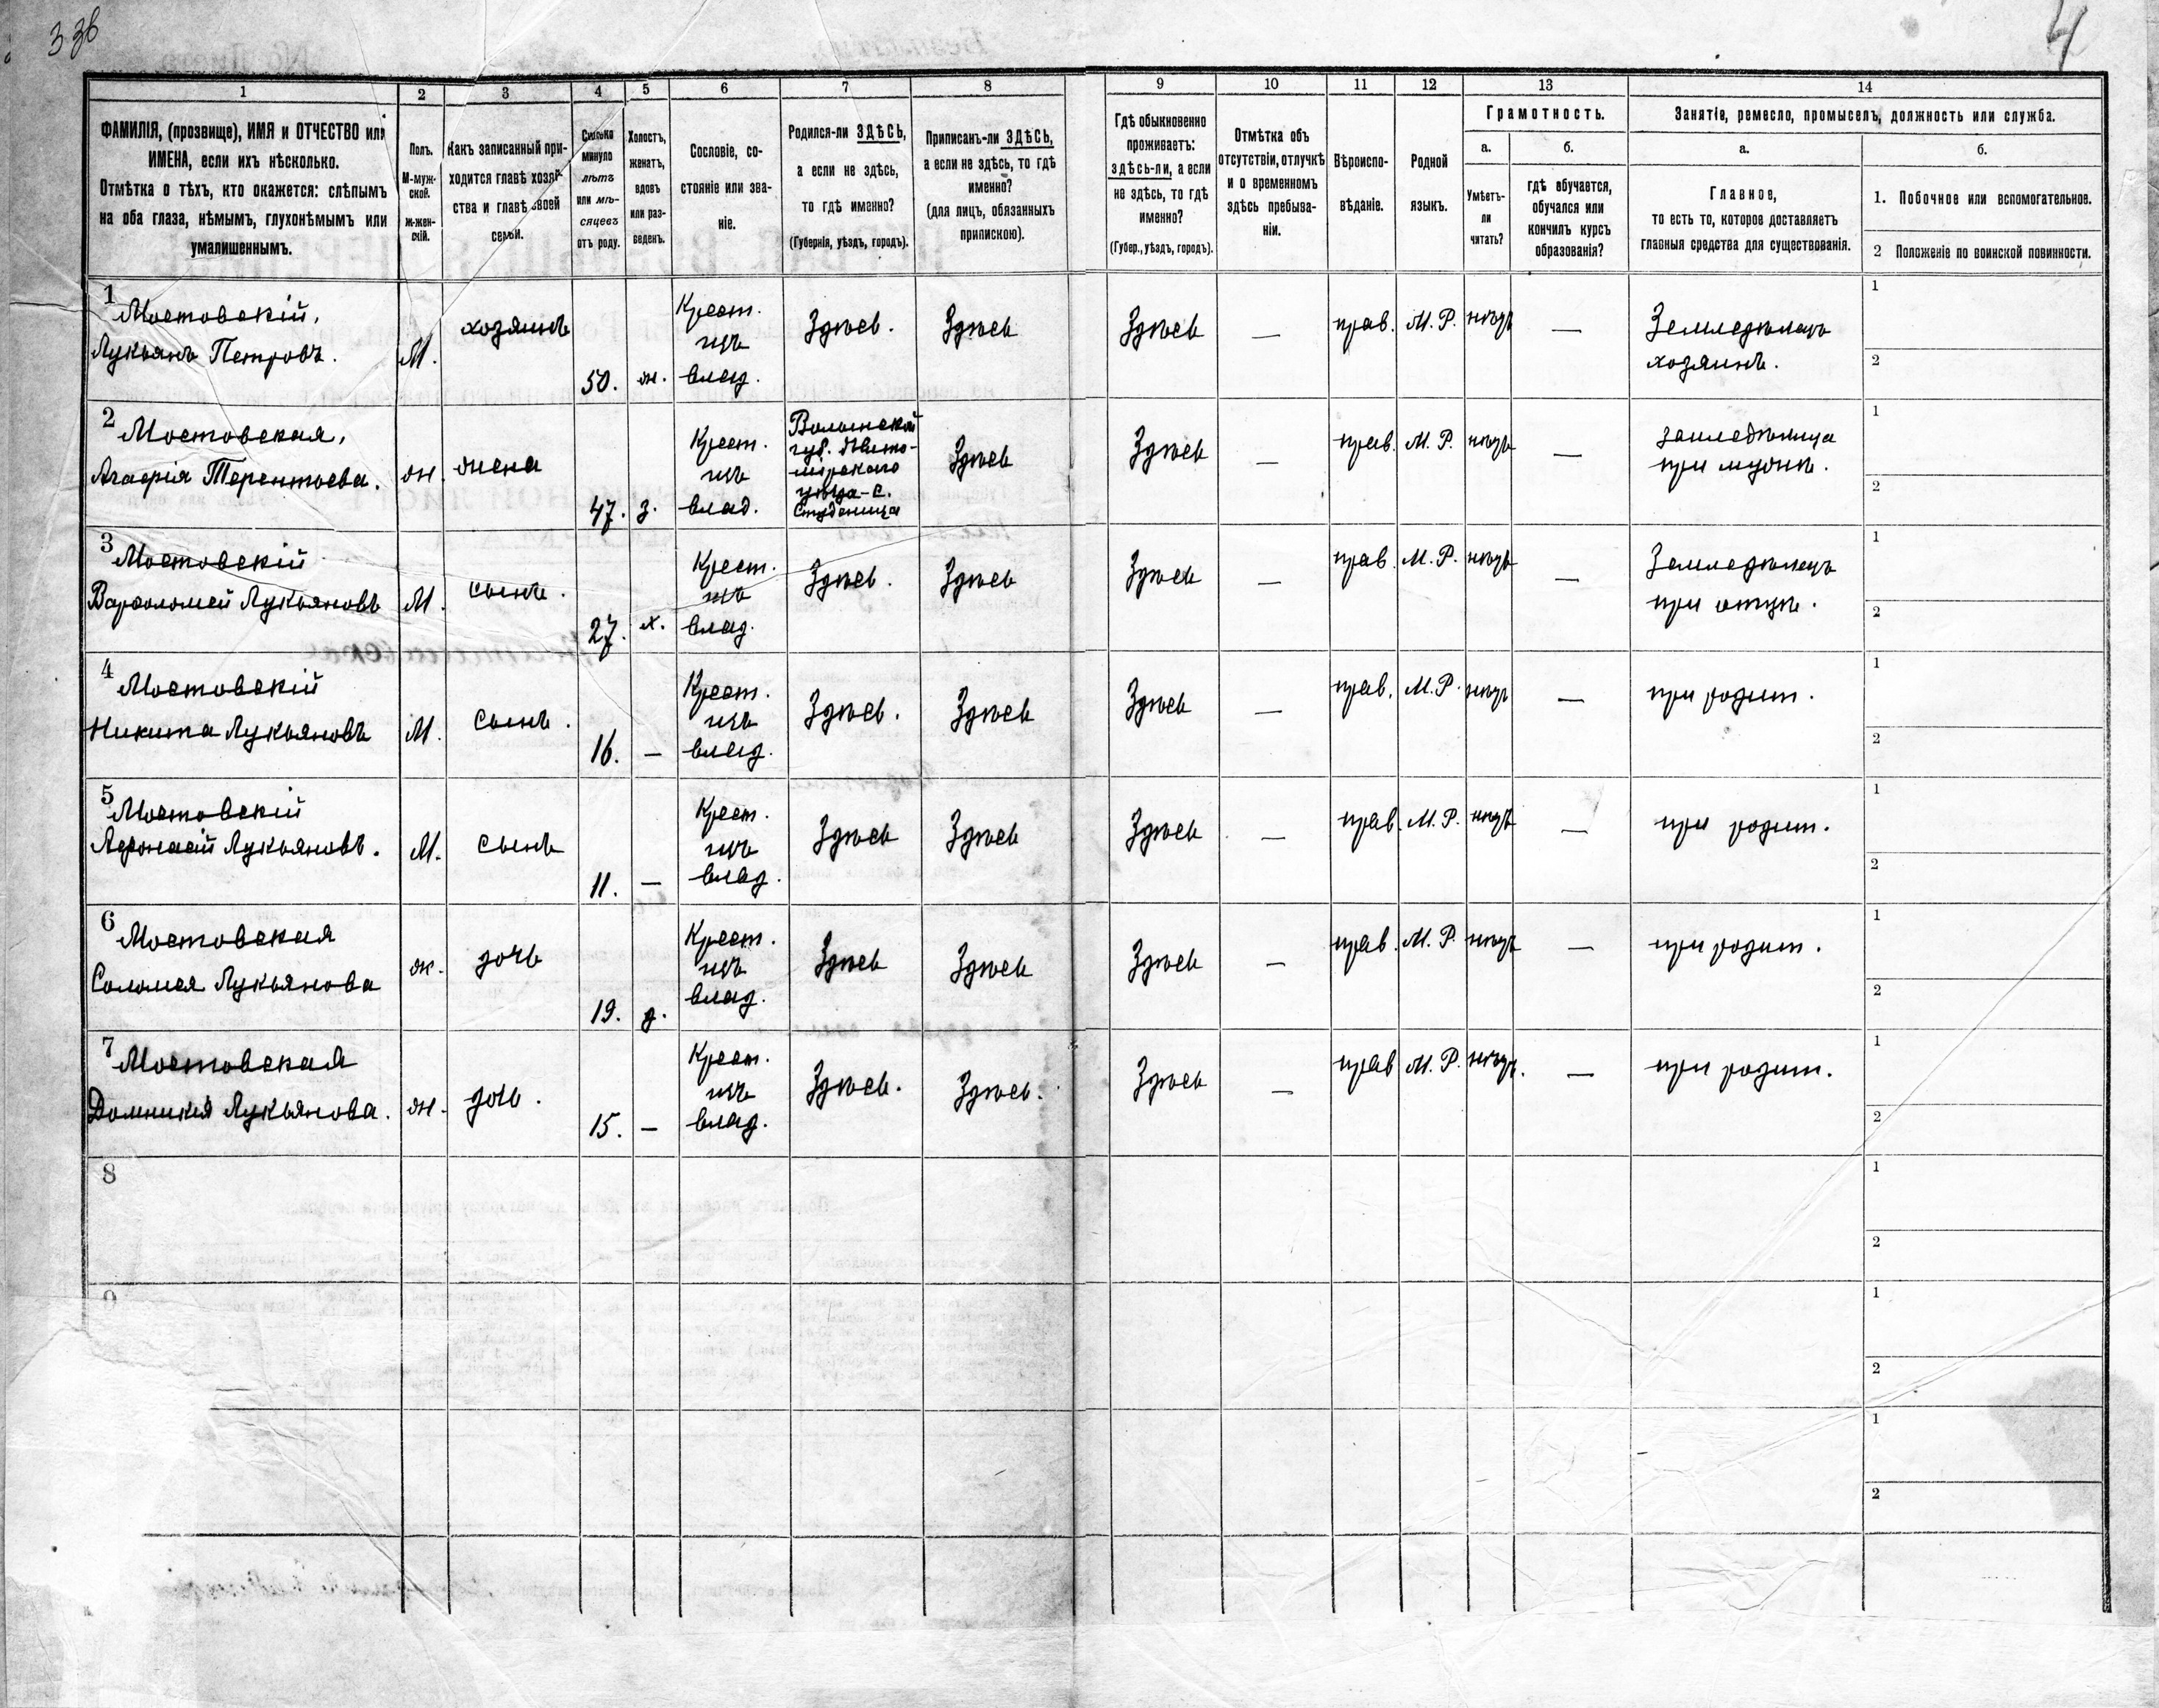 336
4
1
2
3
4
5
6
7
8
9
10
11
12
13
14
ФАМИЛІЯ, (прозвище), ИМЯ и ОТЧЕСТВО или
ИМЕНА, если ихъ нѣсколько.
Отмѣтка о тѣхъ, кто окажется: слѣпымъ
на оба глаза, нѣмымъ, глухонѣмымъ или
умалишеннымъ.
Полъ.
М-муж-
ской.
Ж-жен-
скій.
Какъ записанный при-
ходится главѣ хозяй-
ства и главѣ своей
семьи.
Сколько
минуло
лѣтъ
или мѣ-
сяцевъ
отъ роду.
Холостъ,
женатъ,
вдовъ
или раз-
веденъ.
Сословіе, со-
стояніе или зва-
ніе.
Родился-ли ЗДѢСЬ,
а если не здѣсь,
то гдѣ именно?
(Губернія, уѣздъ, городъ).
Приписанъ-ли ЗДѢСЬ,
а если не здѣсь, то гдѣ
именно?
(для лицъ, обязанныхъ
припискою).
Гдѣ обыкновенно
проживаетъ:
здѣсь-ли, а если
не здѣсь, то гдѣ
именно?
(Губер., уѣздъ, городъ).
Отмѣтка объ
отсутствіи, отлучкѣ
и о временномъ
здѣсь пребыва-
ніи.
Вѣроиспо-
вѣданіе.
Родной
языкъ.
Грамотность.
а.
Умѣетъ-
ли
читать?
б.
гдѣ обучается,
обучался или
кончилъ курсъ
образованія?
Занятіе, ремесло, промыселъ, должность или служба.
а.
Главное,
то есть то, которое доставляетъ
главныя средства для существованія.
б.
1. Побочное или вспомогательное.
2 Положеніе по воинской повинности.
1
Мостовскій,
Лукьянъ Петровъ.
М.
хозяинъ
50.
ж.
Крест.
изъ
влад.
Здѣсь.
Здѣсь
Здѣсь
—
прав.
М. Р.
нѣтъ
—
Земледѣлецъ
хозяинъ.
1
2
2
Мостовская,
Агафія Терентьева.
ж.
жена
47.
з.
Крест.
изъ
влад.
Волынской
губ. Жито-
мірскаго
уѣзда – с.
Студеница
Здѣсь
Здѣсь
—
прав.
М. Р.
нѣтъ
—
земледѣлица
при мужѣ.
1
2
3
Мостовскій
Варфоломей Лукьяновъ
М.
сынъ.
27.
х.
Крест.
изъ
влад.
Здѣсь.
Здѣсь
Здѣсь
—
прав.
М. Р.
нѣтъ
—
Земледѣлецъ
при отцѣ.
1
2
4
Мостовскій
Никита Лукьяновъ
М.
сынъ.
16.
—
Крест.
изъ
влад.
Здѣсь.
Здѣсь
Здѣсь
—
прав.
М. Р.
нѣтъ
—
при родит.
1
2
5
Мостовскій
Афонасій Лукьяновъ.
М.
сынъ
11.
—
Крест.
изъ
влад.
Здѣсь
Здѣсь
Здѣсь
—
прав.
М. Р.
нѣтъ
—
при родит.
1
2
6
Мостовская
Соломея Лукьянова
ж.
дочь
19.
д.
Крест.
изъ
влад.
Здѣсь
Здѣсь
Здѣсь
—
прав.
М. Р.
нѣтъ
—
при родит.
1
2
7
Мостовская
Домникія Лукьянова.
ж.
дочь.
15.
—
Крест.
изъ
влад.
Здѣсь.
Здѣсь.
Здѣсь
—
прав
М. Р.
нѣтъ.
—
при родит.
1
2
8
1
2
9
1
2
1
2